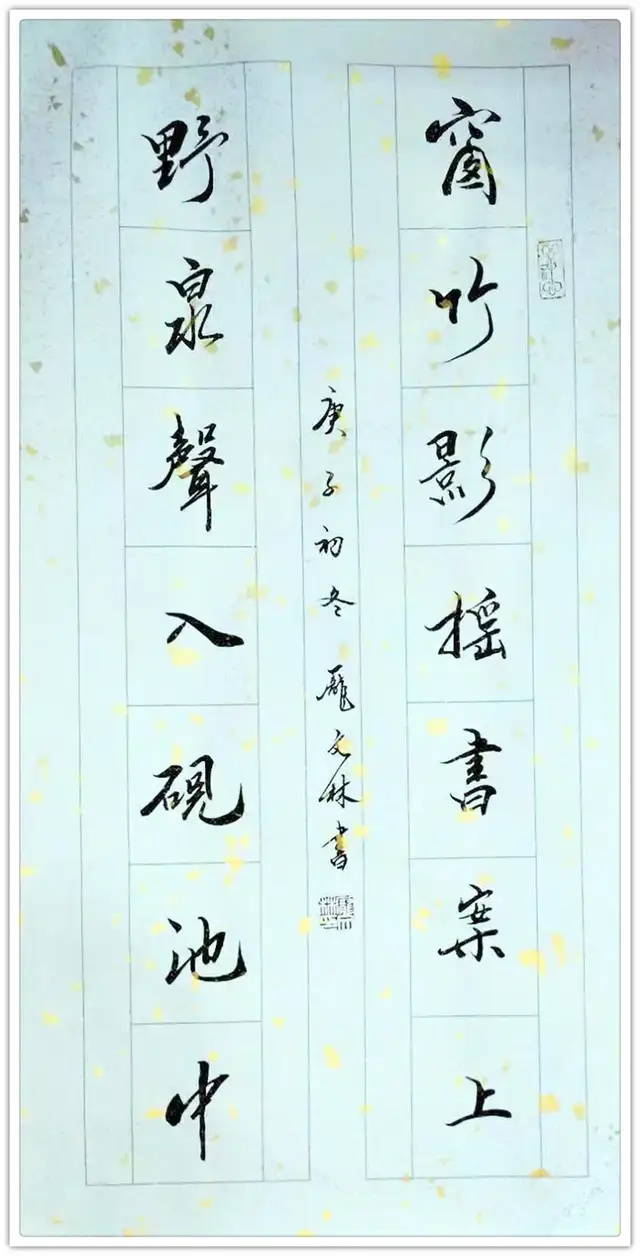 窗竹影摇書案上
野泉聲入硯池中
庚子初冬龐文林書